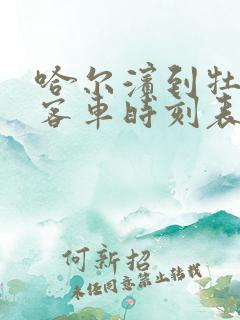 哈尔滨到牡
客车时刻表
何新招
未经同意禁止转载